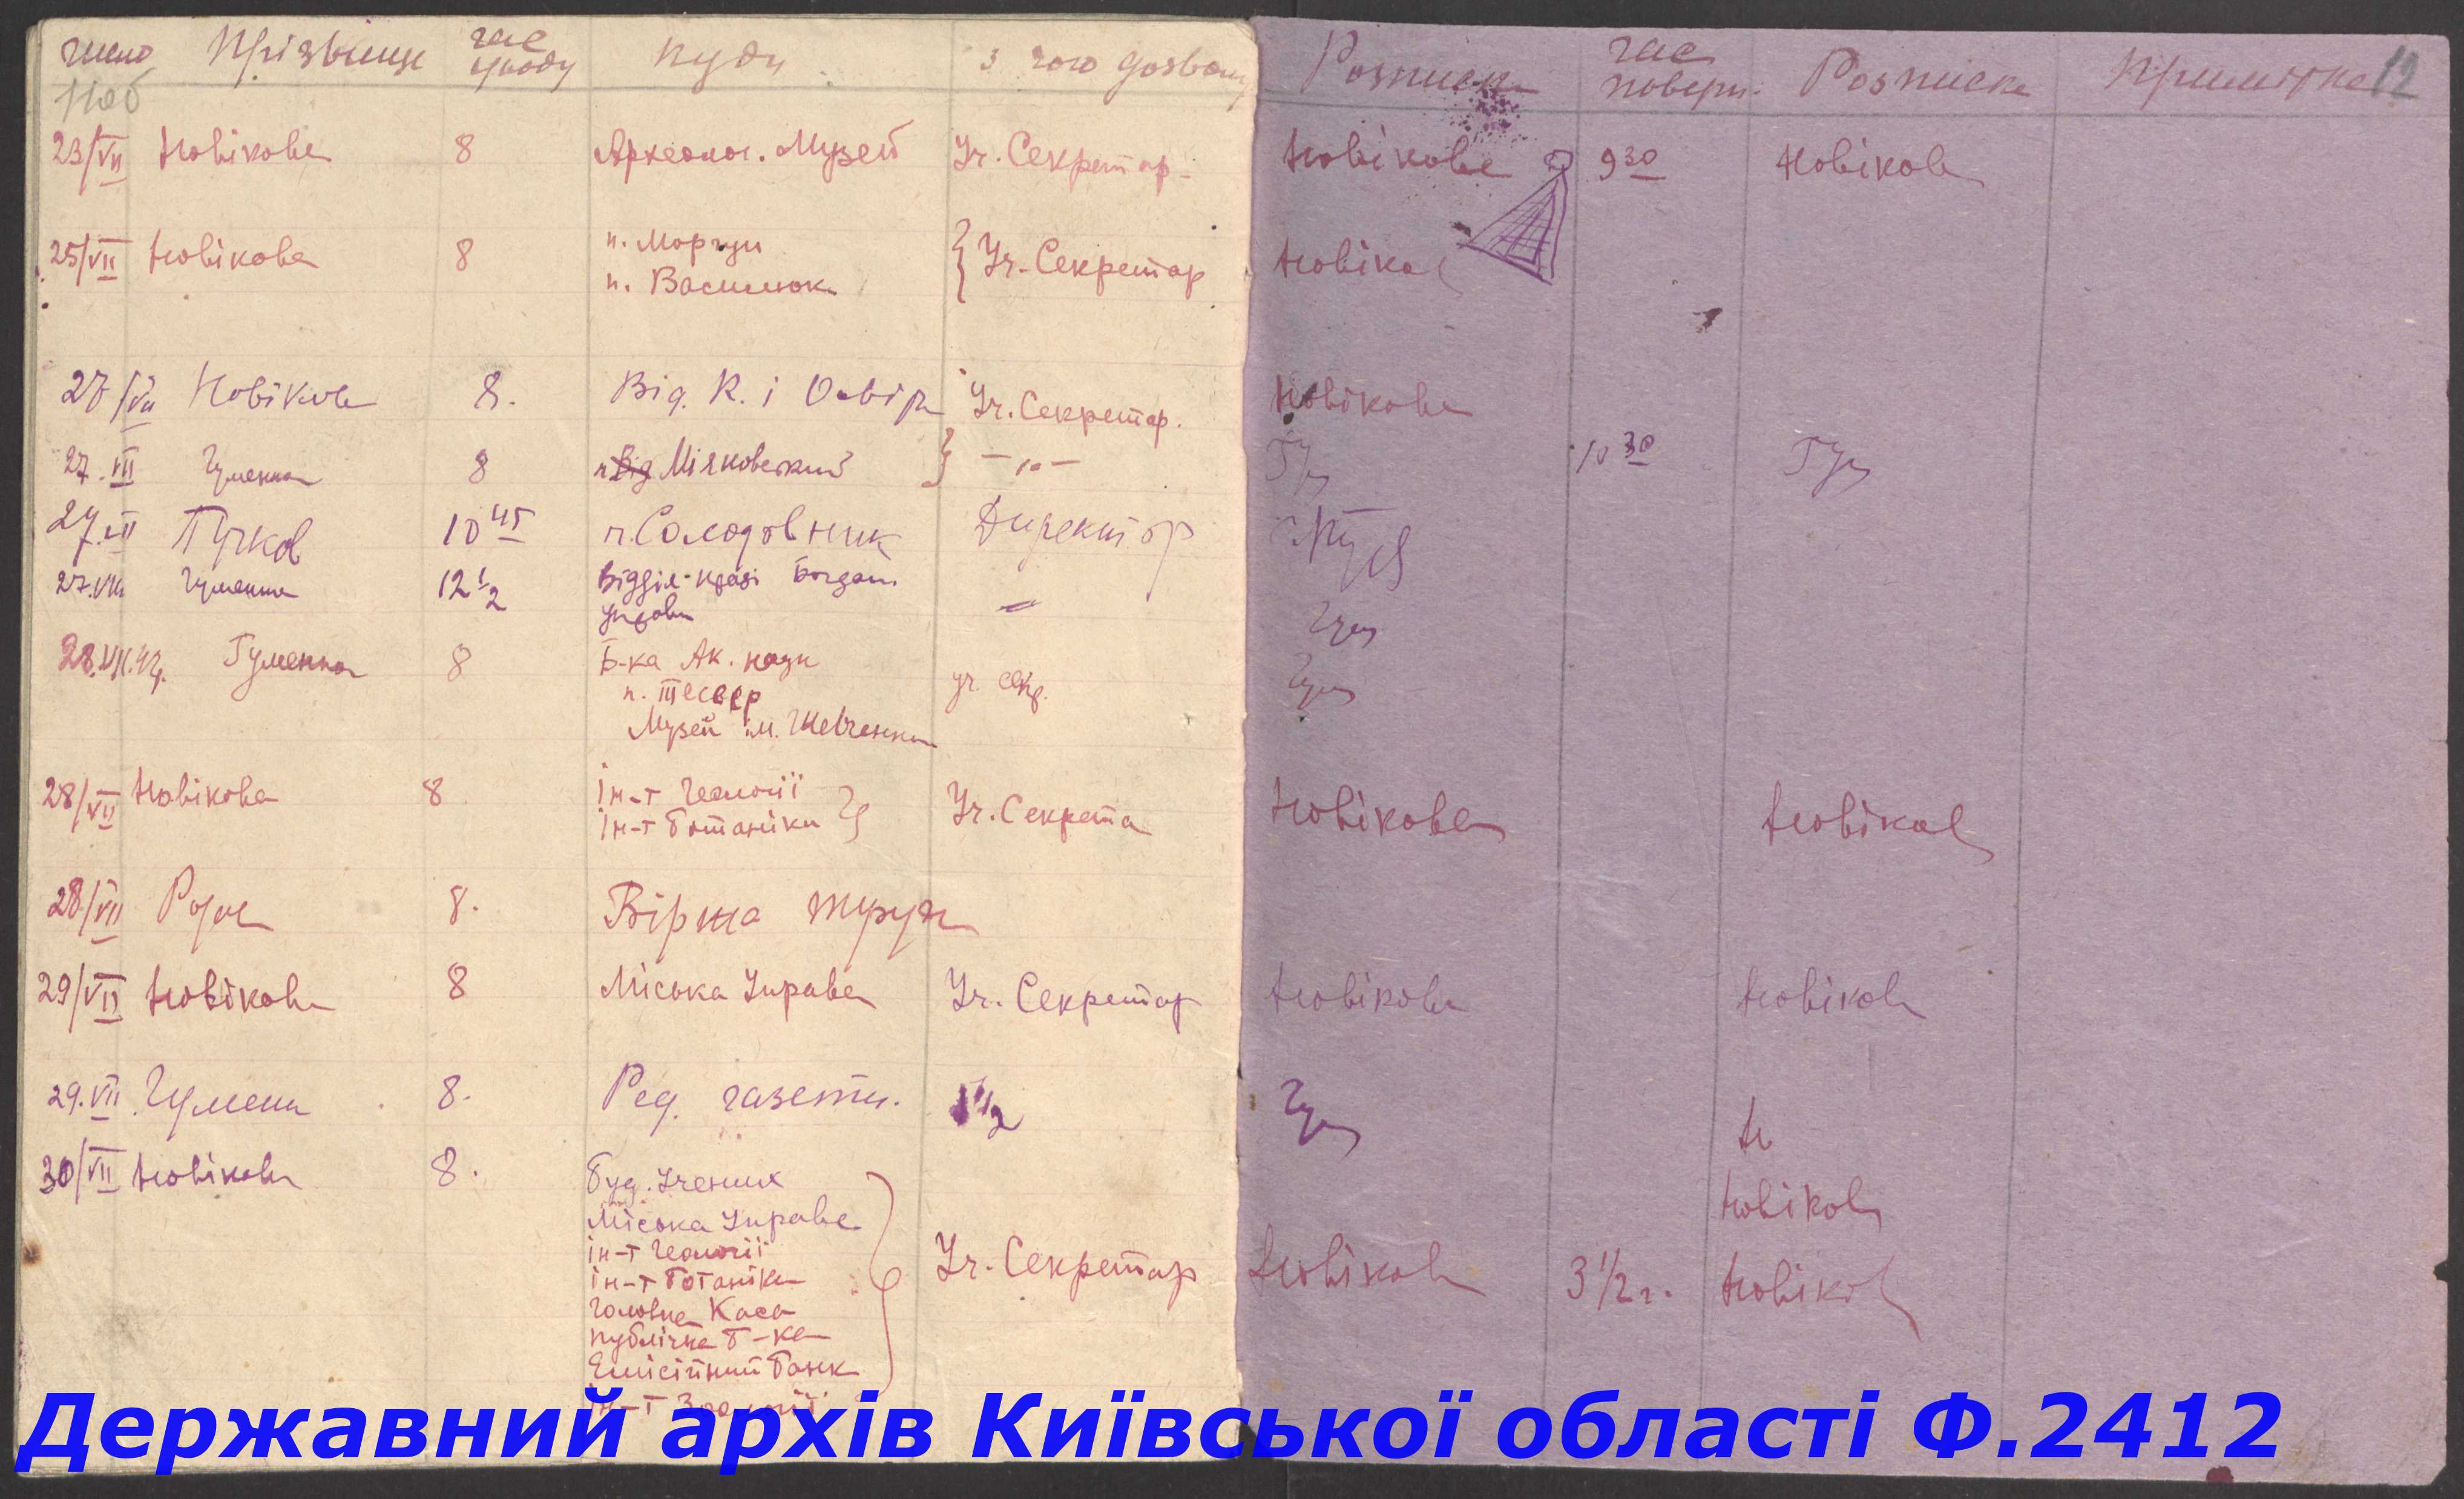 число Прізвище час уходу куди з чого дозволу Розписка час поверн. Розписка Примітка 12
23/VII Новікова 8 Археолог. Музей Уч. Секретар Новікова 9 30 Новікова
25/VII Новікова 8 п. Моргун
п. Василюк { Уч. Секретар Новіко
27/VII Новікова 8. Від. К. і Освіти Уч. Секретар. Новікова
27.VII Гуменна 8 п. Міяковський } — " — Гум 10 30 Гум
27.VII Пучков 10 45 п. Солодовник Директор
27.VII Гуменна 12 1/2 Відділ
управи Гум
28.VII.42. Гуменна 8 Б-ка Ак. наук
п. Тесвер уч. секр. Гум
Музей ім. Шевченка
28/VII Новікова 8 Ін-т Геології
Ін-т Ботаніки } Уч. Секрета Новікова Новіков
28/VII 8. Біржа труда
29/VII Новікова 8 Міська Управа Уч. Секретар Новікова Новікова
29.VII Гуменн 8. Ред. газети. 1 1/2 Гум Н
30/VII Новікова 8. Буд. Учених
Міська Управа Новікова
Ін-т Геології
Ін-т Ботаніки Уч. Секретар Новікова 3 1/2 г. Новіков
Головна Каса
Публічна Б-ка
Емісійний Банк
Ін-т Зоології
Державний архів Київської області Ф.2412